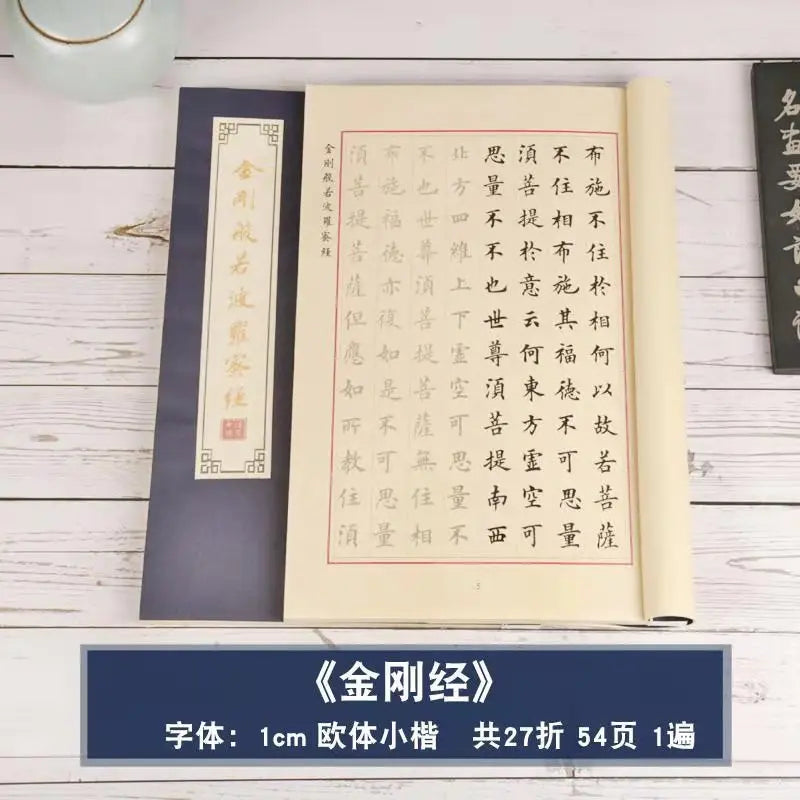 金剛般若波羅蜜經
布施不住於相何以故若菩薩
不住相布施其福德不可思量
須菩提於意云何東方虛空可
思量不不也世尊須菩提南西
北方四維上下虛空可思量不
不也世尊須菩提菩薩無住相
布施福德亦復如是不可思量
須菩提菩薩但應如所教住須
金剛般若波羅蜜經
5
名畫要如
《金刚经》
字体：1cm 欧体小楷 共27折 54页 1遍